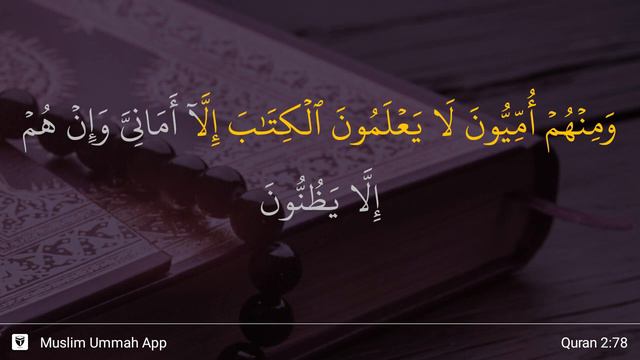 وَمِنۡهُمۡ أُمِّيُّونَ لَا يَعۡلَمُونَ ٱلۡكِتَٰبَ إِلَّآ أَمَانِيَّ وَإِنۡ هُمۡ
إِلَّا يَظُنُّونَ
Muslim Ummah App
Quran 2:78